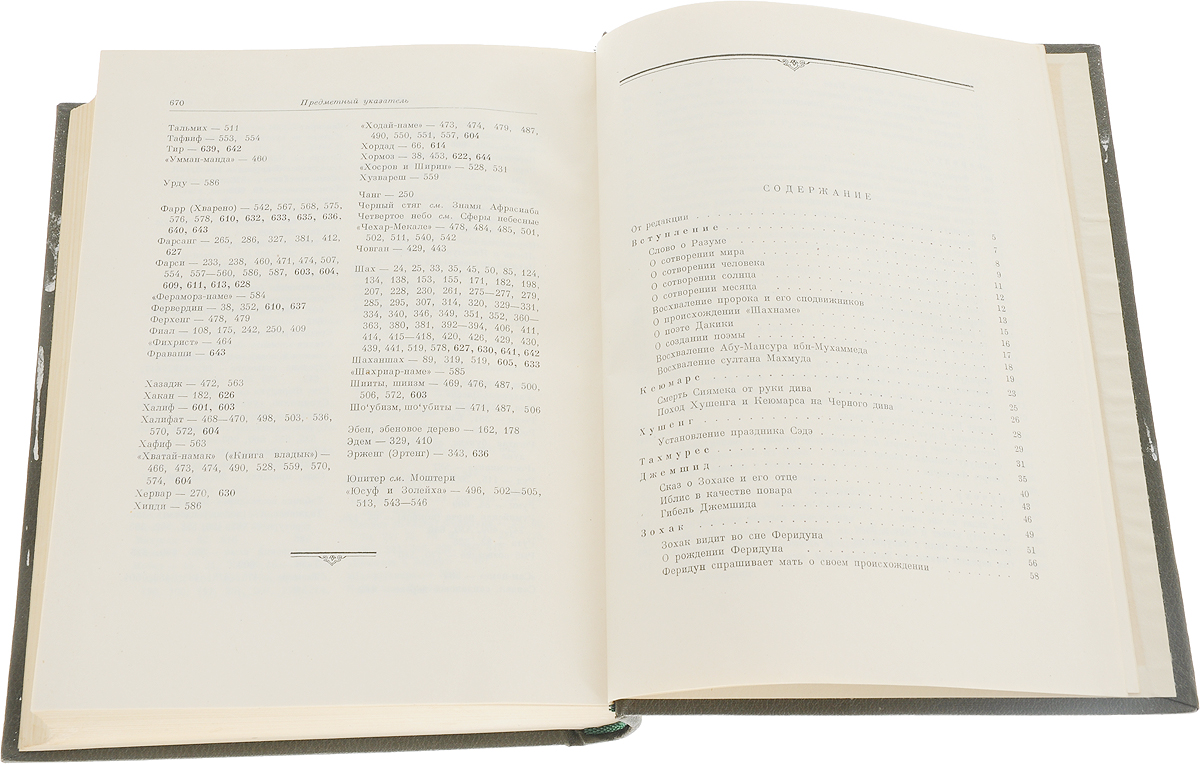 670 Предметный указатель
Тальмих — 511
Тафвиф — 553, 554
Тир — 639, 642
«Умман-манда» — 460
Урду — 586
Фарр (Хварено) — 542, 567, 568, 575,
576, 578, 610, 632, 633, 635, 636,
640, 643
Фарсанг — 265, 286, 327, 381, 412,
627
Фарси — 233, 238, 460, 471, 474, 507,
554, 557—560, 586, 587, 603, 604,
609, 611, 613, 628
«Фераморз-наме» — 584
Фервердин — 38, 352, 610, 637
Ферхенг — 478, 479
Фиал — 108, 175, 242, 250, 409
«Фихрист» — 464
Фраваши — 643
Хазадж — 472, 563
Хакан — 182, 626
Халиф — 601, 603
Халифат — 468—470, 498, 503, 536,
570, 572, 604
Хафиф — 563
«Хватай-намак» («Книга владык»)—
466, 473, 474, 490, 528, 559, 570,
574, 604
Хервар — 270, 630
Хинди — 586
«Ходай-наме» — 473, 474, 479, 487,
490, 550, 551, 557, 604
Хордад — 66, 614
Хормоз — 38, 453, 622, 644
«Хосров и Ширин» — 528, 531
Хузвареш — 559
Чанг — 250
Черный стяг см. Знамя Афрасиаба
Четвертое небо см. Сферы небесные
«Чехар-Мекале» — 478, 484, 485, 501,
502, 511, 540, 542
Човган — 429, 443
Шах — 24, 25, 33, 35, 45, 50, 85, 124,
134, 138, 153, 155, 171, 182, 198,
207, 228, 230, 261, 275—277, 279,
285, 295, 307, 314, 320, 329—331,
334, 340, 346, 349, 351, 352, 360—
363, 380, 381, 392—394, 406, 411,
414, 415—418, 420, 426, 429, 430,
439, 441, 519, 578, 627, 630, 641, 642
Шаханшах — 89, 319, 519, 605, 633
«Шахриар-наме» — 585
Шииты, шиизм — 469, 476, 487, 500,
506, 572, 603
Шо'убизм, шо'убиты — 471, 487, 506
Эбен, эбеновое дерево — 162, 178
Эдем — 329, 410
Эрженг (Эртенг) — 343, 636
Юпитер см. Моштери
«Юсуф и Золейха» — 496, 502—505,
513, 543—546
СОДЕРЖАНИЕ
От редакции 5
Вступление 7
Слово о Разуме 8
О сотворении мира 9
О сотворении человека 11
О сотворении солнца 12
О сотворении месяца 12
Восхваление пророка и его сподвижников 13
О происхождении «Шахнаме» 15
О поэте Дакики 16
О создании поэмы 17
Восхваление Абу-Мансура ибн-Мухаммеда 18
Восхваление султана Махмуда 19
Кеюмарс 23
Смерть Сиямека от руки дива 25
Поход Хушенга и Кеюмарса на Черного дива 26
Хушенг 28
Установление праздника Сэдэ 29
Тахмурес 31
Джемшид 35
Сказ о Зохаке и его отце 40
Иблис в качестве повара 43
Гибель Джемшида 46
Зохак 49
Зохак видит во сне Феридуна 51
О рождении Феридуна 56
Феридун спрашивает мать о своем происхождении 58